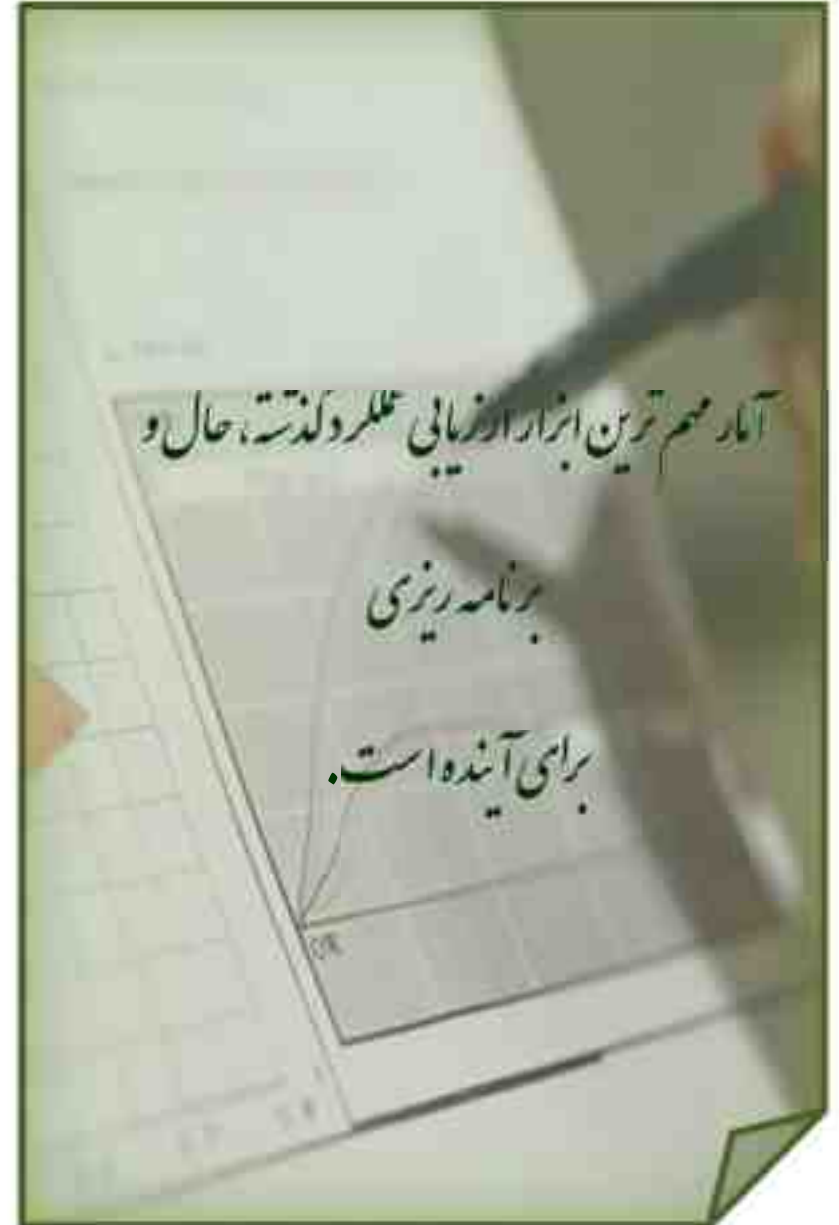 آمار مهم ترین ابزار ارزیابی عملکرد گذشته، حال و
برنامه ریزی
برای آینده است.